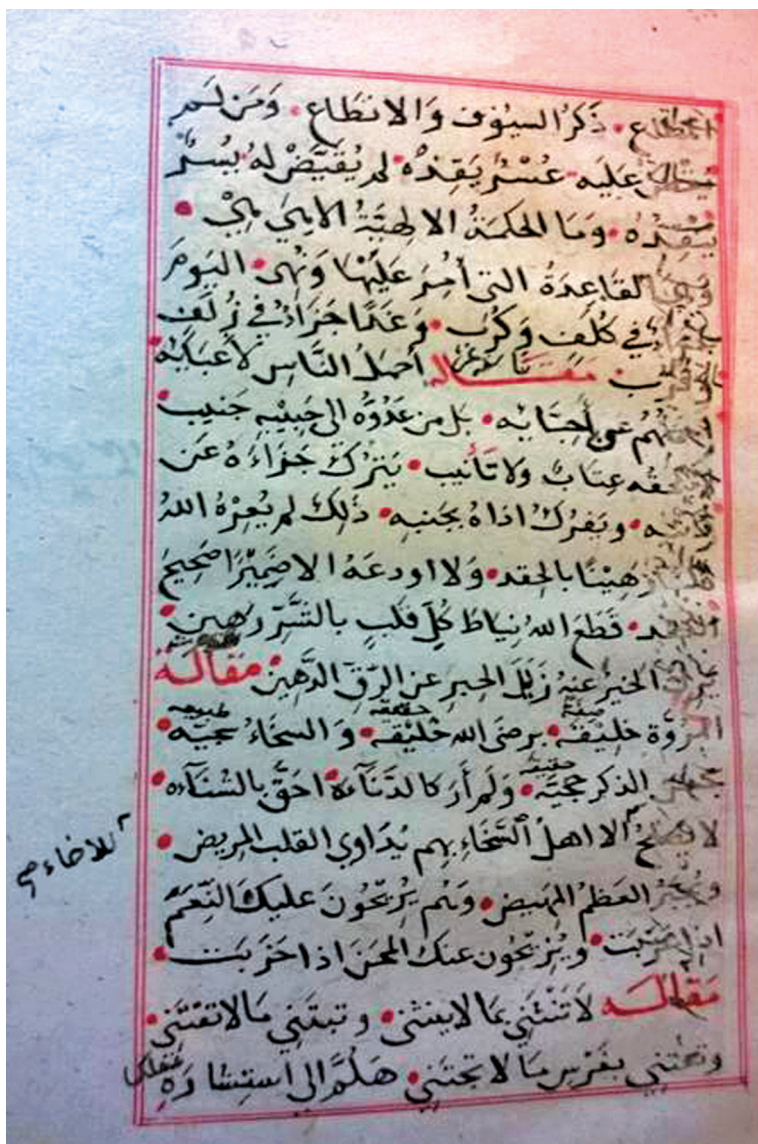 ذكرُ السيوف وَالانطاع • وَمَن لم
عليه عُسْرٌ يَقِذُهُ • لم يُقيَّضْ لهُ يُسْرٌ
وَمَا الحكمَةُ الالهيَّةُ الا
القَاعِدَةُ التي أُمِرَ عَلَيْهَا وَنُهى • اليومَ
في كُلَفٍ وَكُرَبٍ • وَغَدًا جَزَاءٌ في زُلَفٍ
مقالة أحملُ النَّاسِ لأعبَائِه
عن أحِبَّائِه • بل من عَدُوِّه الى حَبِيْبِهِ جَنِيب
عِتَابٌ ولا تَأنيب • يَترك جَزَاءَهُ عَن
• ويَعْرُكُ اذاهُ بجَنبِه • ذٰلك لم يُعِرْهُ اللهُ
رَهِيْنًا بالحِقد • وَلا اودعَهُ الا ضَمِيْرًا صَحِيحَ
• قَطَعَ اللهُ نِيَاطَ كُلِّ قَلبٍ بالشَّرِّ رَهِين
الخيرُ عَنهُ زَلَلَ الحِبرِ عَنِ الرَّقِّ الدَّهِين • مقالة
المُرُوَّة خليْقَة • برضَى الله خَليْقَة • وَ السخَاءُ سَجِيَّه
الذكر حَجِيَّه • وَلم أرَ كالدَّنَآءة احَقَّ بالشنَآءه
لا يَصلحُ الا اهلُ السَّخَاءِ بهم يُدَاوي القلب المريض
للاخاء صح
العَظمُ المَهيض • وَهُم يُرِيْحُونَ عليكَ النِّعَمَ
اذا عَزَبَت • ويُزِيْحُونَ عنكَ المِحَنَ اذا حَزَبَت
مقالة لا تَثْنِنِي عَمَّا لا ينثنى • وتبتَنِي مَا لا تقتَنِي
وتعتَنِي بغَرْسِ مَا لا تجتَنِي • هَلُمَّ الى استِشَارَةِ
عقلك